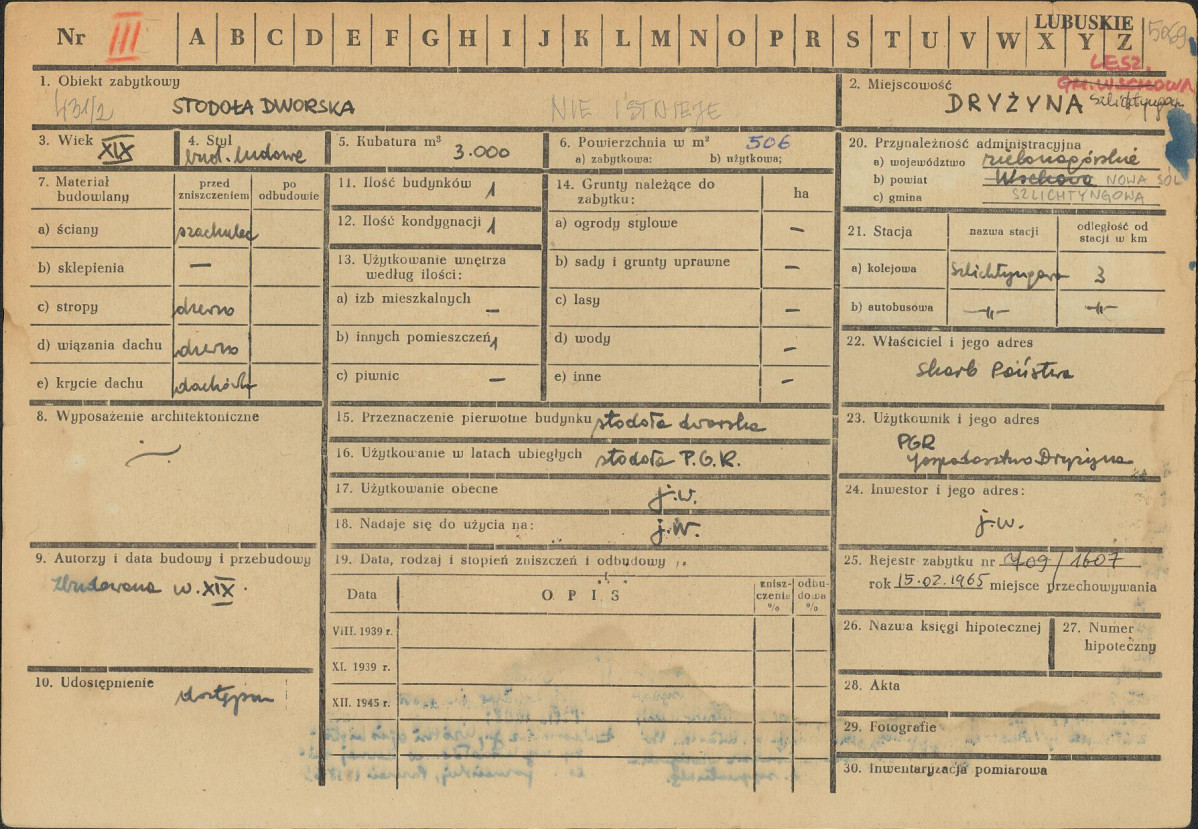 LUBUSKIE
Nr III A B C D E F G H I J K L M N O P R S T U V W X Y Z 5069
LESZ.
GM. WSCHOWA
1. Obiekt zabytkowy
431/2 STODOŁA DWORSKA NIE ISTNIEJE
2. Miejscowość
DRYŻYNA Szlichtyngowa
3. Wiek XIX
4. Styl
bud. ludowe
5. Kubatura m³ 3.000
6. Powierzchnia w m² 506
a) zabytkowa: b) użytkowa;
7. Materiał budowlany
przed zniszczeniem
po odbudowie
a) ściany szachulec
b) sklepienia —
c) stropy drewno
d) wiązania dachu drewno
e) krycie dachu dachówka
8. Wyposażenie architektoniczne
9. Autorzy i data budowy i przebudowy
Zbudowana w. XIX.
10. Udostępnienie dostępna
11. Ilość budynków 1
12. Ilość kondygnacji 1
13. Użytkowanie wnętrza
według ilości:
a) izb mieszkalnych —
b) innych pomieszczeń 1
c) piwnic —
14. Grunty należące do
zabytku:
ha
a) ogrody stylowe —
b) sady i grunty uprawne —
c) lasy —
d) wody —
e) inne —
15. Przeznaczenie pierwotne budynku stodoła dworska
16. Użytkowanie w latach ubiegłych stodoła P.G.R.
17. Użytkowanie obecne j.w.
18. Nadaje się do użycia na: j.w.
19. Data, rodzaj i stopień zniszczeń i odbudowy
Data OPIS
znisz-
czenia
%
odbu-
dowa
%
VIII. 1939 r.
XI. 1939 r.
XII. 1945 r.
20. Przynależność administracyjna
a) województwo zielonogórskie
b) powiat Wschowa NOWA SÓL
c) gmina SZLICHTYNGOWA
21. Stacja
nazwa stacji
odległość od
stacji w km
a) kolejowa Szlichtyngowa 3
b) autobusowa —"— —"—
22. Właściciel i jego adres
Skarb Państwa
23. Użytkownik i jego adres
PGR
Gospodarstwo Dryżyna
24. Inwestor i jego adres:
j.w.
25. Rejestr zabytku nr 709/1607
rok 15.02.1965 miejsce przechowywania
26. Nazwa księgi hipotecznej
27. Numer
hipoteczny
28. Akta
29. Fotografie
30. Inwentaryzacja pomiarowa